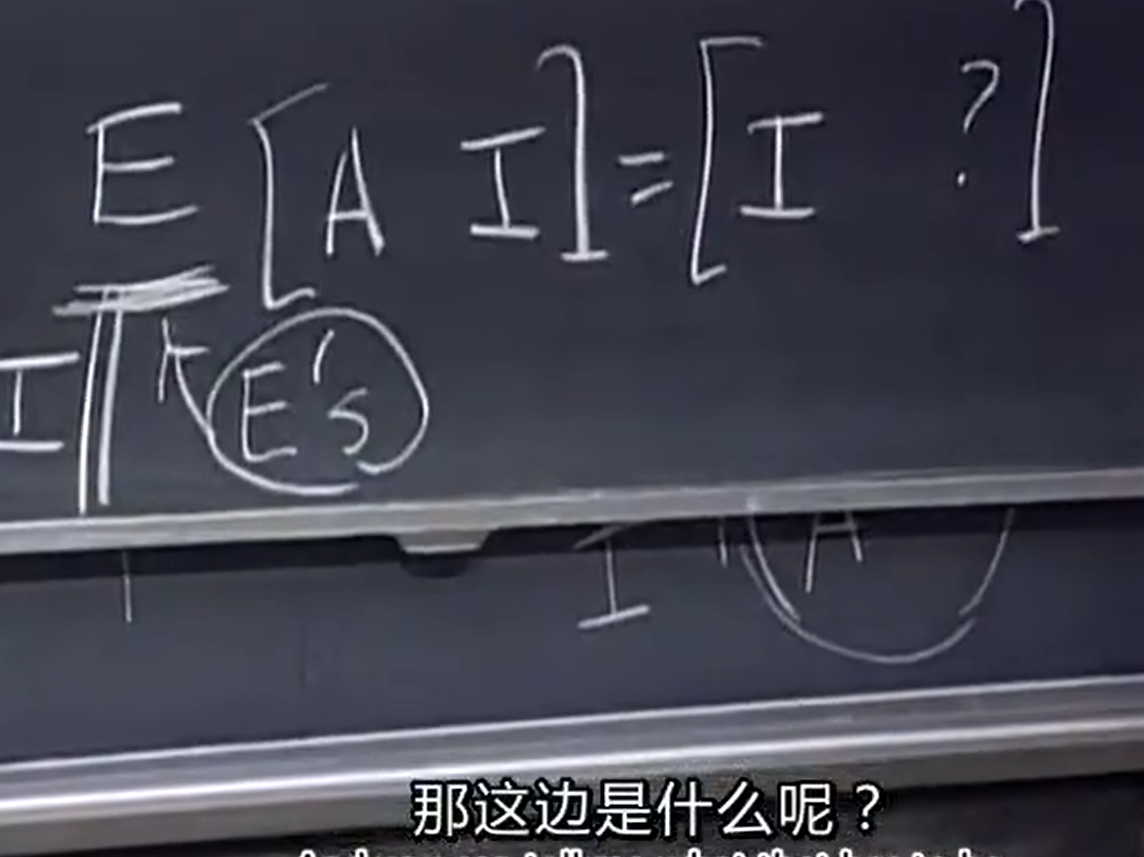 E [A I] = [I ?]
I E's
I A
那这边是什么呢？